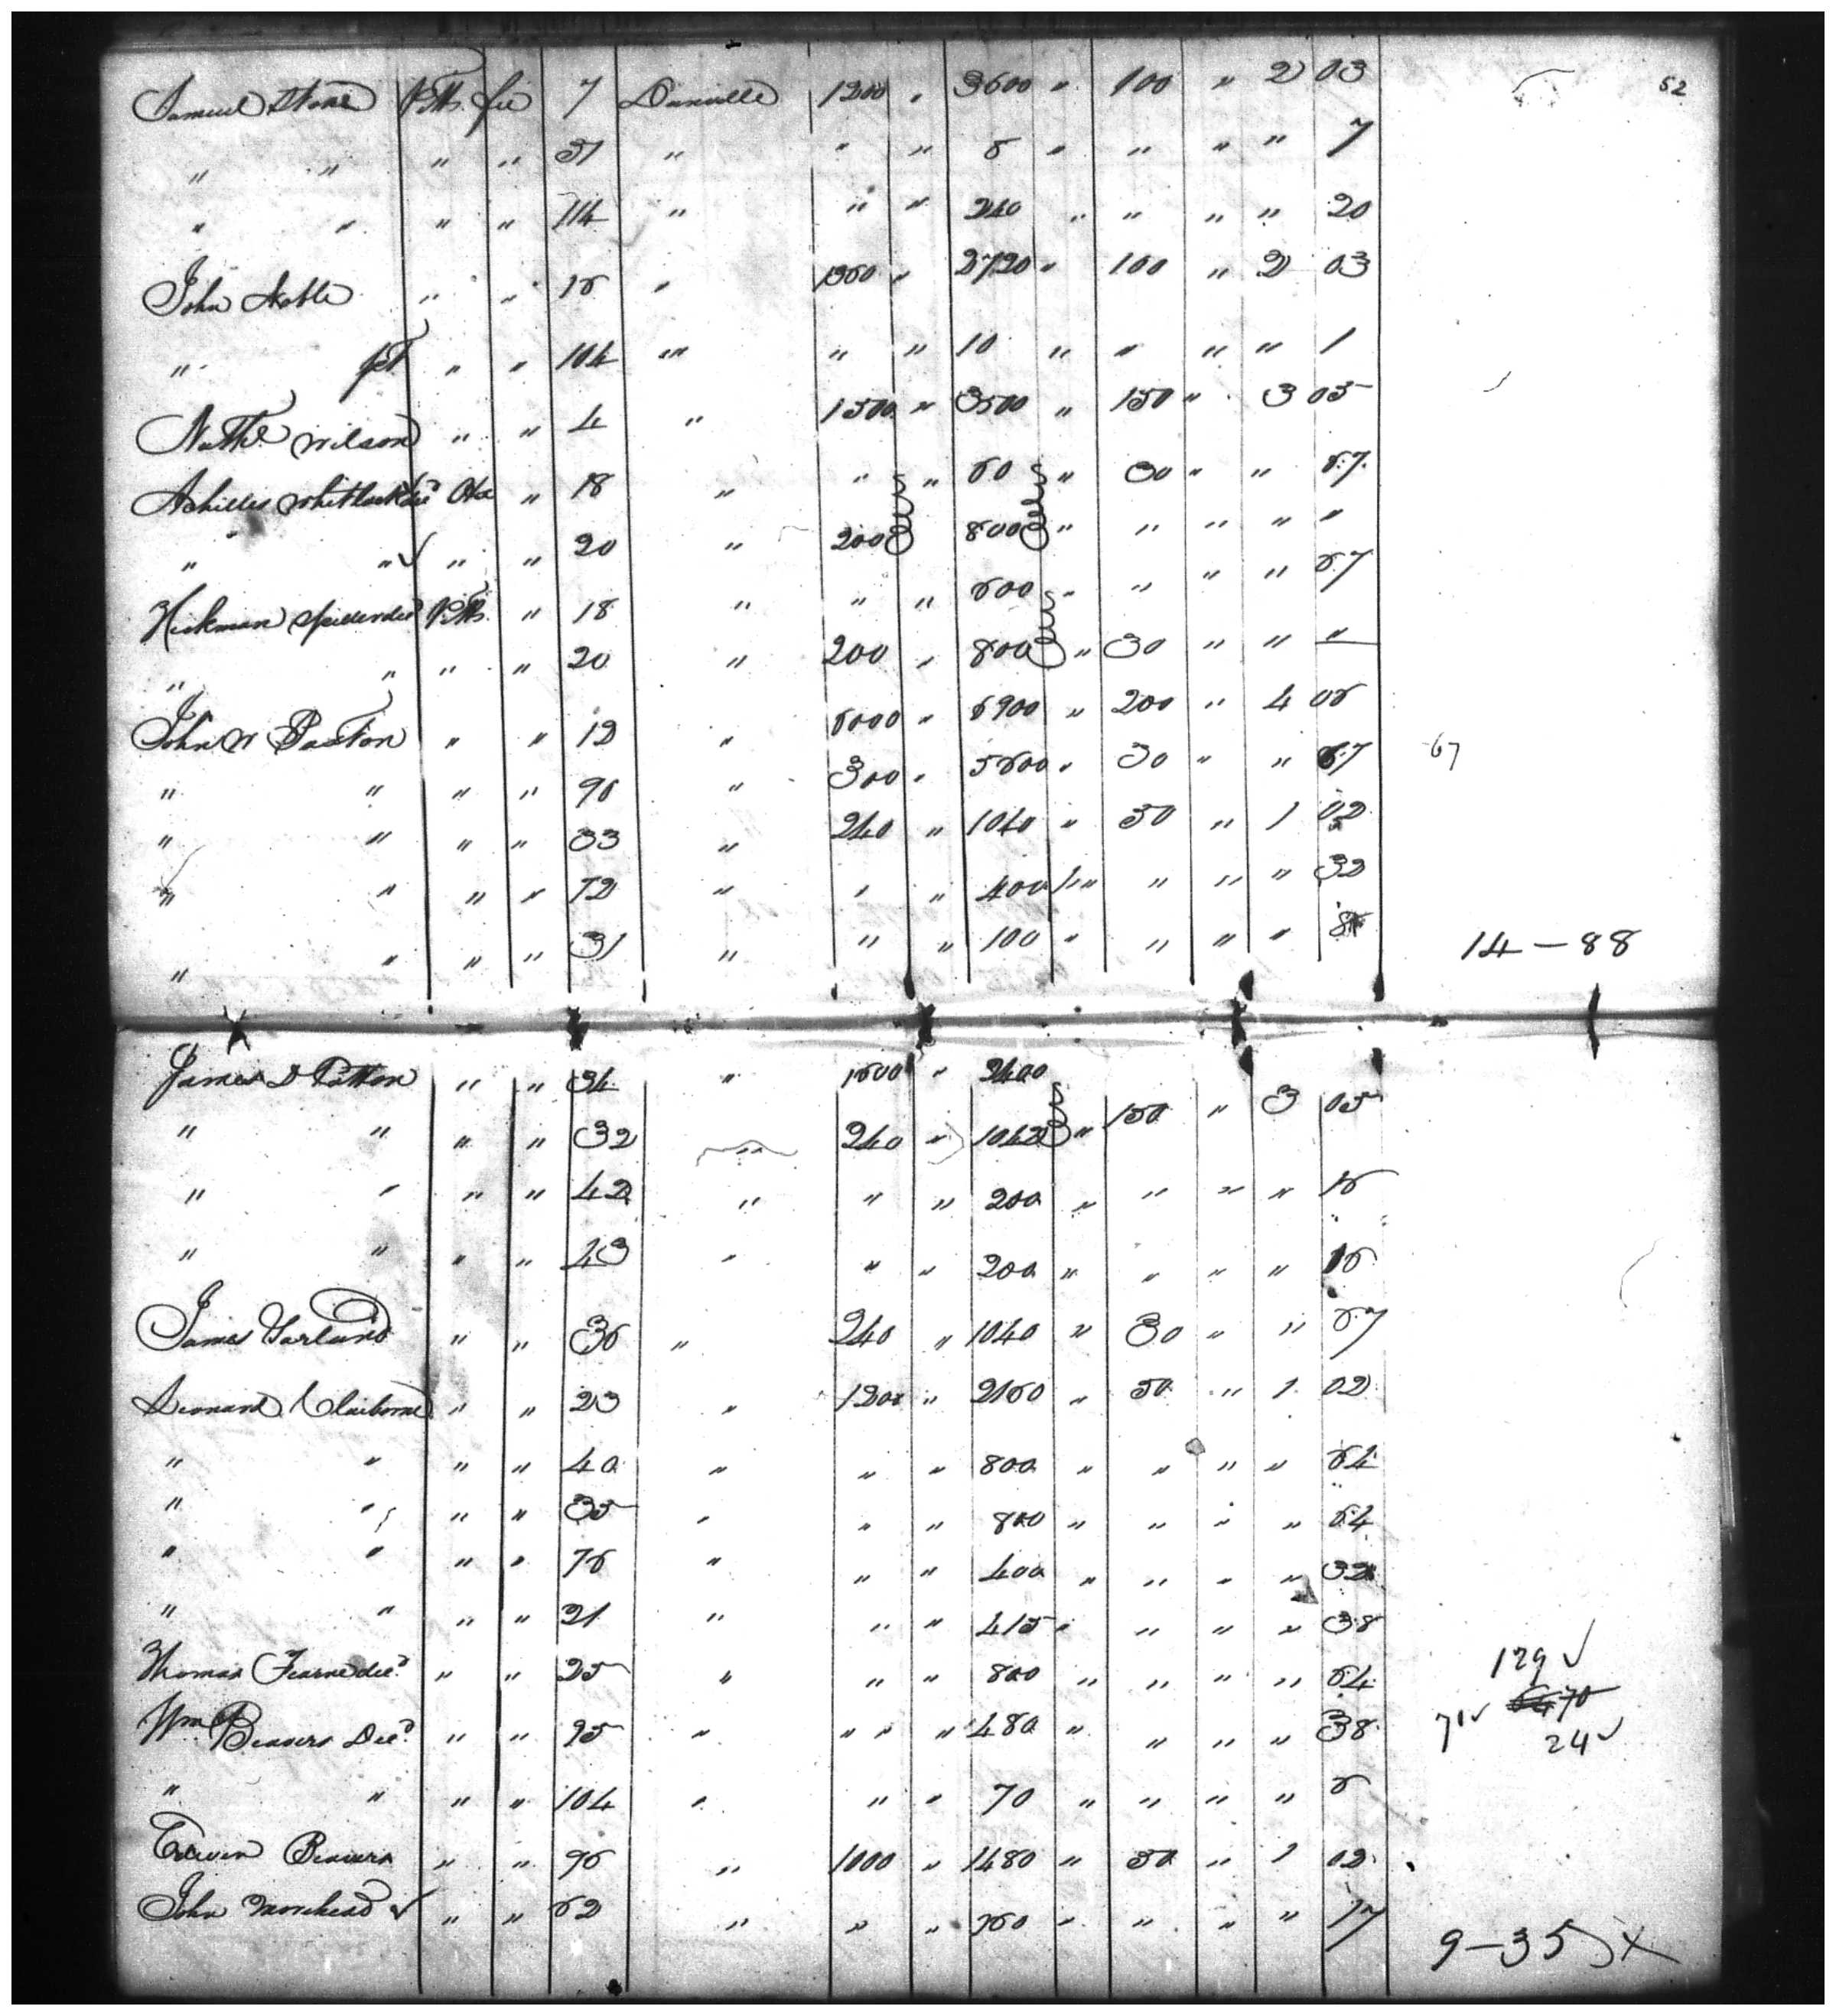 52
Samuel Stone Pitts. fee 7 Danville 1200 " 3600 " 100 " 2 03
" " " " 31 " " " 8 " " " " 7
" " " " 114 " " " 240 " " " " 20
John Noble " " 16 " 1360 " 2720 " 100 " 2 03
" pt " " 104 " " " 10 " " " " 1
Nathl Wilson " " 4 " 1500 " 3500 " 150 " 3 05
Achilles Whitlock decd Hx " 18 " " " 60 " 30 " " 67
" " ✓ " " 20 " 200 800 " " " " "
Hickman Spiller decd Pitts. " 18 " " " 600 " " " " 67
" " " " 20 " 200 " 800 " 30 " " "
John W Paxton " " 12 " 6000 " 6900 " 200 " 4 06
" " " " 96 " 300 " 5600 " 30 " " 67 67
" " " " 33 " 240 " 1040 " 50 " 1 02
" " " " 72 " " " 400 " " " " 32
" " " " 31 " " " 100 " " " " 8
14 – 88
James D Patton " " 34 " 1600 " 2400
" " " " 32 " 240 " 1042 " 150 " 3 05
" " " " 42 " " " 200 " " " " 16
" " " " 43 " " " 200 " " " " 16
James Garland " " 36 " 240 " 1040 " 30 " " 67
Leonard Claiborne " " 23 " 1200 " 2160 " 50 " 1 02
" " " " 40 " " " 800 " " " " 64
" " " " 35 " " " 800 " " " " 64
" " " " 76 " " " 400 " " " " 32
" " " " 21 " " " 415 " " " " 38
Thomas Fearne decd " " 25 " " " 800 " " " " 64
129 ✓
Wm Beavers Decd " " 95 " " " " 480 " " " " 38
71 ✓ 24 ✓
" " " " 104 " " " 70 " " " " 6
Edwin Beavers " " 96 " 1000 " 1480 " 50 " 1 02
John Morehead ✓ " " 62 " " " 360 " " " " 17
9–35 X